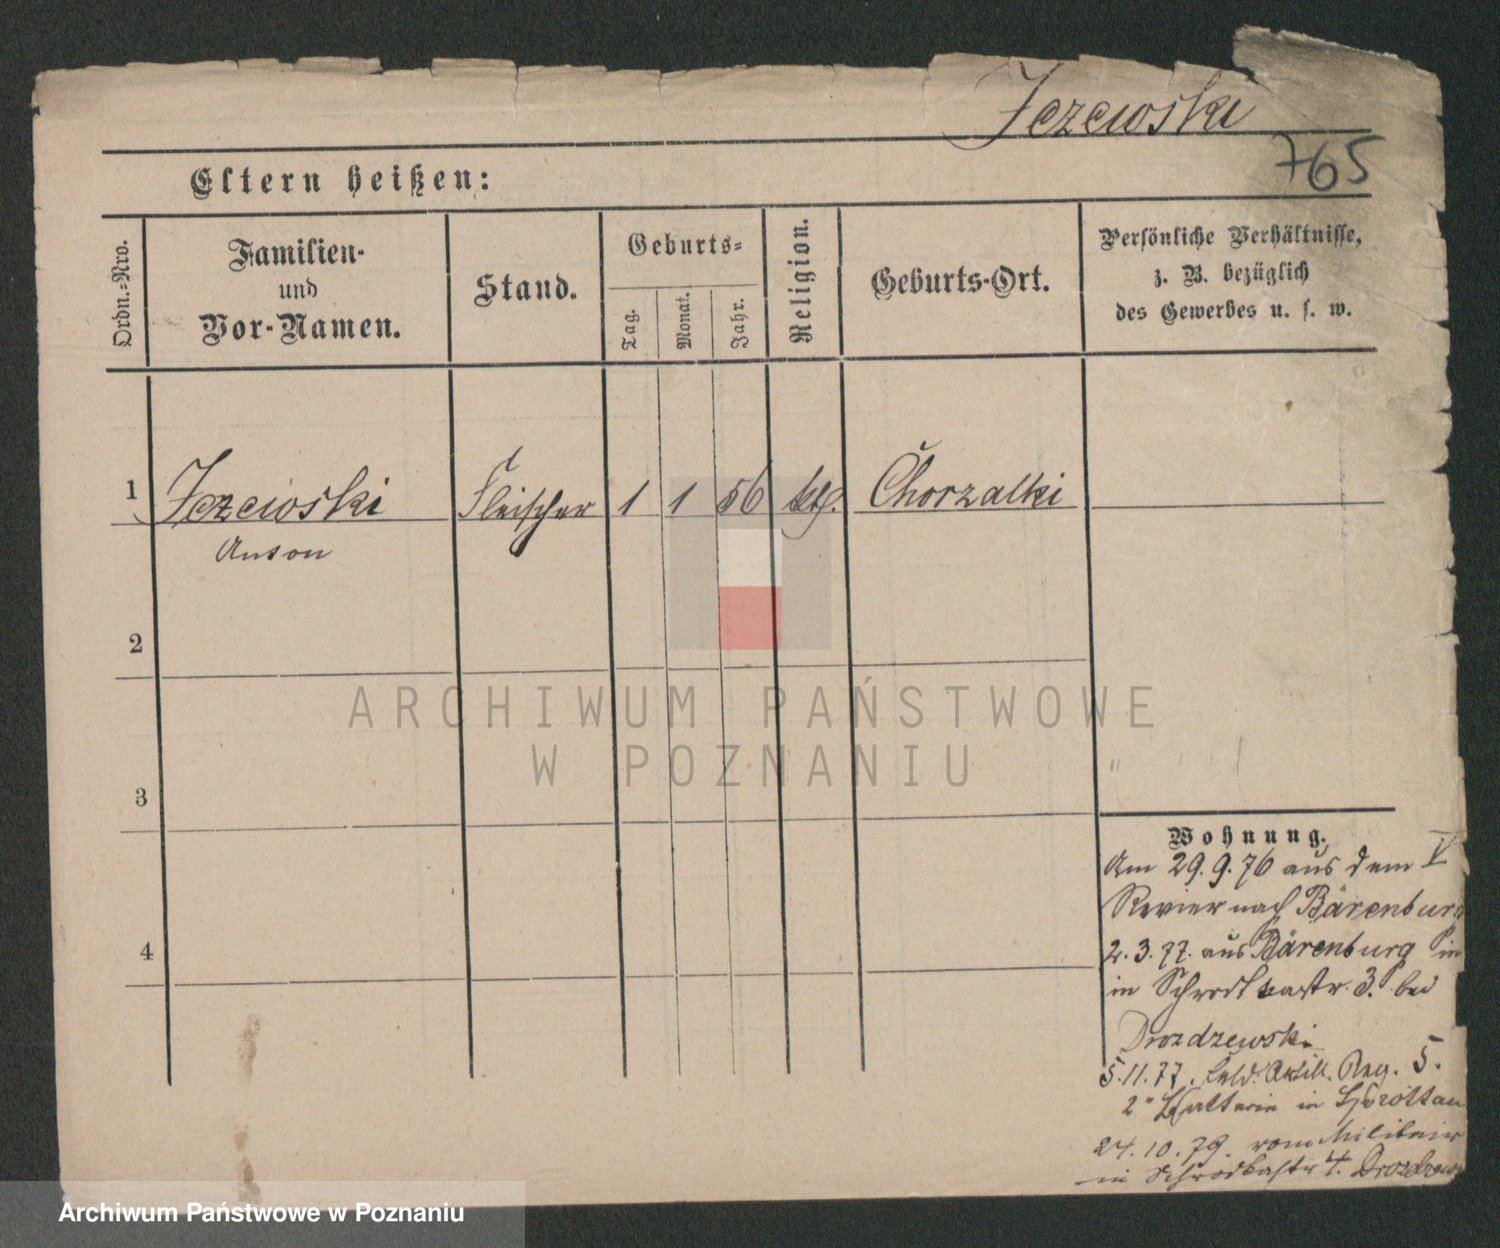 Jezewski
765
Eltern heißen:
Ordn.-Nro.
Familien-
und
Vor-Namen.
Stand.
Geburts-
Tag.
Monat.
Jahr.
Religion.
Geburts-Ort.
Persönliche Verhältnisse,
z. B. bezüglich
des Gewerbes u. s. w.
1 Jezewski Fleischer 1 1 56 kth. Chorzalki
Anton
2
3
4
Wohnung.
Am 29.9.76 aus dem V
Revier nach Bärenburg
2.3.77. aus Bärenburg
in Schrodkastr. 3. bei
Drozdzewski
5.11.77. Feld. Artill. Reg. 5.
2" Batterie in Sprottau
24.10.79. vom Militair
in Schrodkastr 4. Drozdzew
ARCHIWUM PAŃSTWOWE
W POZNANIU
Archiwum Państwowe w Poznaniu